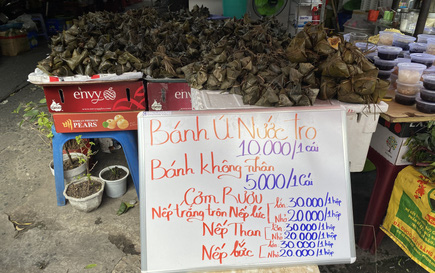 envy
PEARS
Bánh Ú Nước Tro
10.000/1 cái
Bánh không nhân
5000/1 Cái
Cơm Rượu
Nếp trắng trộn Nếp lức
lớn 30.000/1 hộp
Nhỏ 20.000/1 hộp
Nếp Than
lớn 30.000/1 hộp
Nhỏ 20.000/1 hộp
Nếp lức
lớn 30.000/1 hộp
Nhỏ 20.000/1 hộp